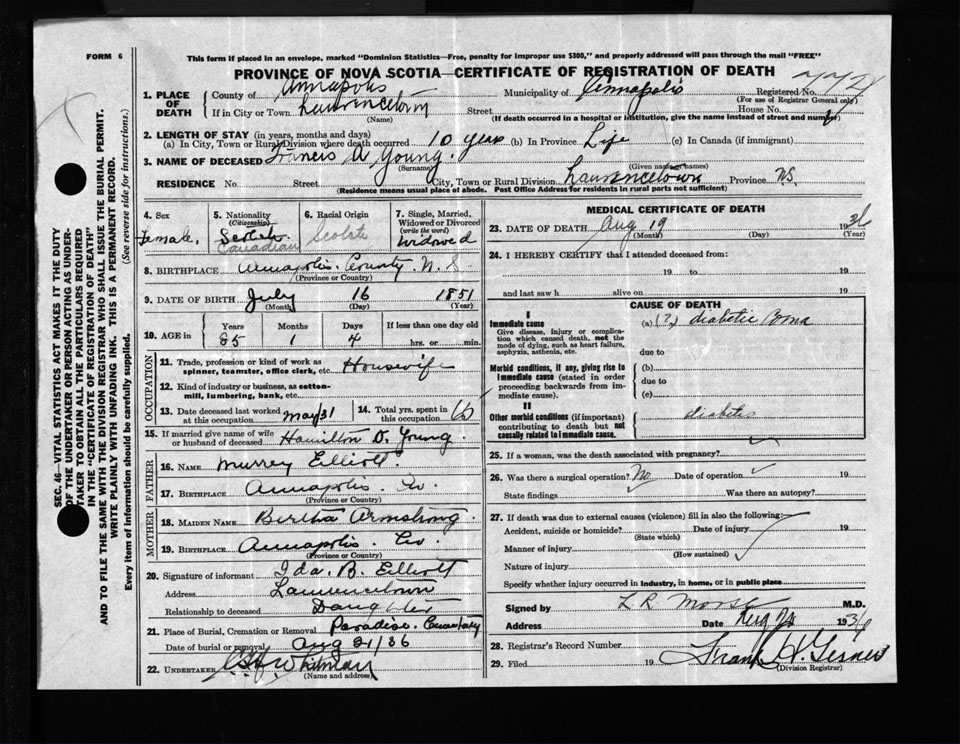 FORM 6
This form if placed in an envelope, marked "Dominion Statistics—Free, penalty for improper use $300," and properly addressed will pass through the mail "FREE"
PROVINCE OF NOVA SCOTIA—CERTIFICATE OF REGISTRATION OF DEATH
1. PLACE OF DEATH
County of Annapolis Municipality of Annapolis Registered No.
(For use of Registrar General only)
If in City or Town Lawrencetown Street House No.
(Name) (If death occurred in a hospital or institution, give the name instead of street and number)
2. LENGTH OF STAY (in years, months and days)
(a) In City, Town or Rural Division where death occurred 10 years (b) In Province Life (c) In Canada (if immigrant)
3. NAME OF DECEASED Francis A Young.
(Surname) (Given name or names)
RESIDENCE No. Street City, Town or Rural Division Lawrencetown Province N.S.
(Residence means usual place of abode. Post Office Address for residents in rural parts not sufficient)
4. Sex Female.
5. Nationality (Citizenship) Scotch Canadian
6. Racial Origin Scotch
7. Single, Married, Widowed or Divorced (write the word) Widowed
8. BIRTHPLACE Annapolis. County. N.S
(Province or Country)
9. DATE OF BIRTH July 16 1851
(Month) (Day) (Year)
10. AGE in Years Months Days If less than one day old
85 1 4 hrs. or min.
OCCUPATION
11. Trade, profession or kind of work as spinner, teamster, office clerk, etc. Housewife
12. Kind of industry or business, as cotton-mill, lumbering, bank, etc.
13. Date deceased last worked at this occupation May/31
14. Total yrs. spent in this occupation
15. If married give name of wife or husband of deceased Hamilton D. Young.
FATHER
16. Name Murrey Elliott.
17. Birthplace Annapolis. Co.
(Province or Country)
MOTHER
18. Maiden Name Bertha Armstrong.
19. Birthplace Annapolis. Co
(Province or Country)
20. Signature of informant Ida. B. Elliott
Address Lawrencetown
Relationship to deceased Daughter
21. Place of Burial, Cremation or Removal Paradise.
Date of burial or removal Aug 21/36
22. UNDERTAKER Whitman
(Name and address)
MEDICAL CERTIFICATE OF DEATH
23. DATE OF DEATH Aug 19 1936
(Month) (Day) (Year)
24. I HEREBY CERTIFY that I attended deceased from:
19 to 19
and last saw h alive on 19
CAUSE OF DEATH
I
Immediate cause
Give disease, injury or complication which caused death, not the mode of dying, such as heart failure, asphyxia, asthenia, etc.
(a) (?) diabetic Coma
due to
Morbid conditions, if any, giving rise to immediate cause (stated in order proceeding backwards from immediate cause).
(b)
due to
(c)
II
Other morbid conditions (if important) contributing to death but not causally related to immediate cause.
diabetes
25. If a woman, was the death associated with pregnancy?
26. Was there a surgical operation? No Date of operation 19
State findings Was there an autopsy?
27. If death was due to external causes (violence) fill in also the following:
Accident, suicide or homicide? Date of injury 19
(State which)
Manner of injury
(How sustained)
Nature of injury
Specify whether injury occurred in industry, in home, or in public place
Signed by L R Morse M.D.
Address Date Aug 1936
28. Registrar's Record Number
29. Filed 19 Frank H. Gesner
(Division Registrar)
SEC. 46—VITAL STATISTICS ACT MAKES IT THE DUTY
OF THE UNDERTAKER OR PERSON ACTING AS UNDERTAKER TO OBTAIN ALL THE PARTICULARS REQUIRED
IN THE "CERTIFICATE OF REGISTRATION OF DEATH"
AND TO FILE THE SAME WITH THE DIVISION REGISTRAR WHO SHALL ISSUE THE BURIAL PERMIT.
WRITE PLAINLY WITH UNFADING INK. THIS IS A PERMANENT RECORD.
Every item of information should be carefully supplied. (See reverse side for instructions.)